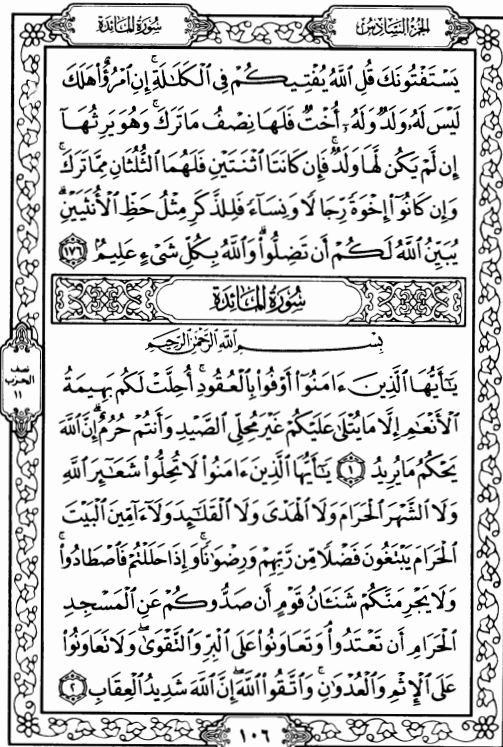 سُورَةُ المَائدة
الجُزْءُ السَّادِسُ
يَسْتَفْتُونَكَ قُلِ ٱللَّهُ يُفْتِيكُمْ فِى ٱلْكَلَـٰلَةِ ۚ إِنِ ٱمْرُؤٌا۟ هَلَكَ
لَيْسَ لَهُۥ وَلَدٌ وَلَهُۥٓ أُخْتٌ فَلَهَا نِصْفُ مَا تَرَكَ ۚ وَهُوَ يَرِثُهَآ
إِن لَّمْ يَكُن لَّهَا وَلَدٌ ۚ فَإِن كَانَتَا ٱثْنَتَيْنِ فَلَهُمَا ٱلثُّلُثَانِ مِمَّا تَرَكَ ۚ
وَإِن كَانُوٓا۟ إِخْوَةً رِّجَالًا وَنِسَآءً فَلِلذَّكَرِ مِثْلُ حَظِّ ٱلْأُنثَيَيْنِ ۗ
يُبَيِّنُ ٱللَّهُ لَكُمْ أَن تَضِلُّوا۟ ۗ وَٱللَّهُ بِكُلِّ شَىْءٍ عَلِيمٌۢ ١٧٦
سُورَةُ المَائدة
بِسْمِ ٱللَّهِ ٱلرَّحْمَـٰنِ ٱلرَّحِيمِ
يَـٰٓأَيُّهَا ٱلَّذِينَ ءَامَنُوٓا۟ أَوْفُوا۟ بِٱلْعُقُودِ ۚ أُحِلَّتْ لَكُم بَهِيمَةُ
ٱلْأَنْعَـٰمِ إِلَّا مَا يُتْلَىٰ عَلَيْكُمْ غَيْرَ مُحِلِّى ٱلصَّيْدِ وَأَنتُمْ حُرُمٌ ۗ إِنَّ ٱللَّهَ
يَحْكُمُ مَا يُرِيدُ ١ يَـٰٓأَيُّهَا ٱلَّذِينَ ءَامَنُوا۟ لَا تُحِلُّوا۟ شَعَـٰٓئِرَ ٱللَّهِ
وَلَا ٱلشَّهْرَ ٱلْحَرَامَ وَلَا ٱلْهَدْىَ وَلَا ٱلْقَلَـٰٓئِدَ وَلَآ ءَآمِّينَ ٱلْبَيْتَ
ٱلْحَرَامَ يَبْتَغُونَ فَضْلًا مِّن رَّبِّهِمْ وَرِضْوَٰنًا ۚ وَإِذَا حَلَلْتُمْ فَٱصْطَادُوا۟ ۚ
وَلَا يَجْرِمَنَّكُمْ شَنَـَٔانُ قَوْمٍ أَن صَدُّوكُمْ عَنِ ٱلْمَسْجِدِ
ٱلْحَرَامِ أَن تَعْتَدُوا۟ ۘ وَتَعَاوَنُوا۟ عَلَى ٱلْبِرِّ وَٱلتَّقْوَىٰ ۖ وَلَا تَعَاوَنُوا۟
عَلَى ٱلْإِثْمِ وَٱلْعُدْوَٰنِ ۚ وَٱتَّقُوا۟ ٱللَّهَ ۖ إِنَّ ٱللَّهَ شَدِيدُ ٱلْعِقَابِ ٢
نصف
الحزب
١١
١٠٦